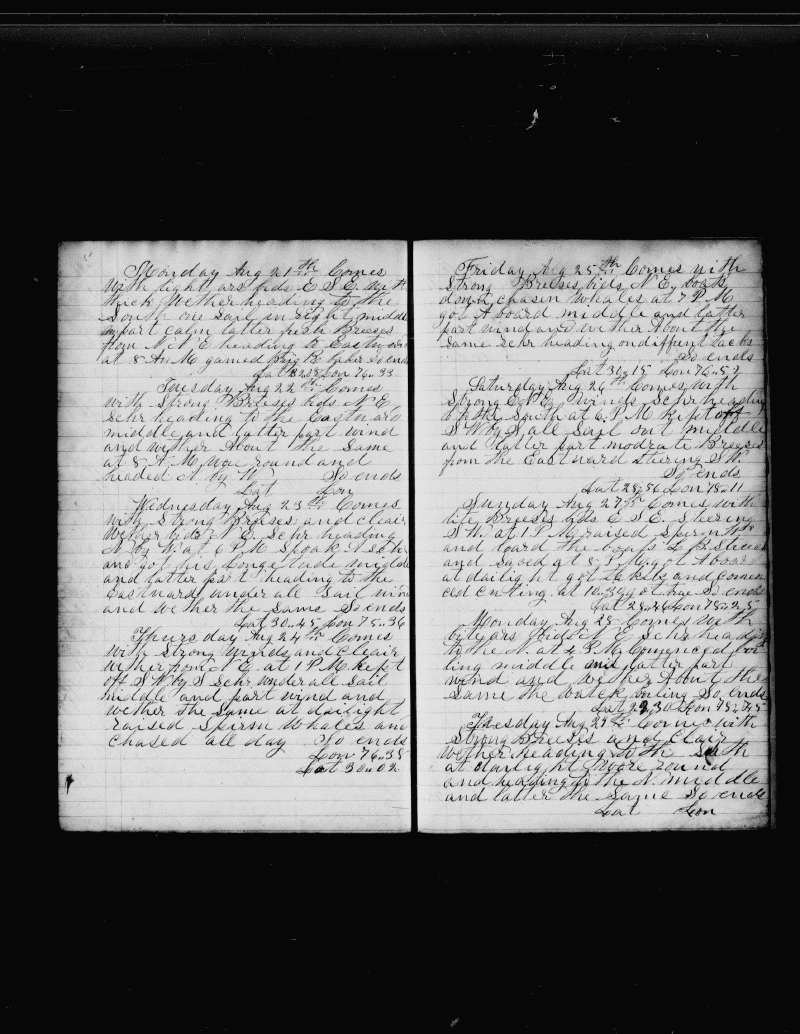 Monday Aug 21th Comes
with light ars hids E S E with
thick wether heading to the
South one sail in sight middle
part calm latter fresh Breeses
from N N E heading to Eastward
at 8 A M gamed Brig So ends
Lat Lon 76..33
Tuesday Aug 22th Comes
with Strong Breeses hids N E
Schr heading to the Eastward
middle and latter part wind
and wether About the Same
at 8 A M wore round and
headed N by W So ends
Lat Lon
Wednesday Aug 23th Comes
with Strong Breeses and clear
wether hids N E. Schr heading
N by W. at 6 P M Spoak A schr
and got his Longetude middle
and latter part heading to the
Eastward under all Sail wind
and wether the Same So ends
Lat 30..45 Lon 75..36
Thursday Aug 24th Comes
with Strong winds and Clear
wether from N E. at 1 P M. kept
off S W by S Schr under all sail
middle and part wind and
wether the same at dailight
raised Spirm Whales and
Chased all day So ends
Lon 76..38
Lat 30..02
Friday Aug 25th Comes with
Strong Breeses hids N E, boats
down chasen whales at 7 P M
got A board middle and latter
part wind and wether About the
Same Schr heading on diffrent tacks
So ends
Lat 30..15 Lon 76..52
Saturday Aug 26th Comes with
Strong E N E. winds Schr heading
to the South at 6. P M Kept off
S W by S all sail out middle
and latter part modrate Breeses
from the Eastward Stering S W.
So ends
Lat 28..56 Lon 78..11
Sunday Aug 27th Comes with
lite Breeses hids E S E. Stering
S W. at 1 P M raised Spirm Whs
and loard the boats L B Struck
and saved at 8, P M got Aboard
at dailight got tackels and comen
ced cuting at 10.30 got thrue So ends
Lat 28..46 Lon 78..25
Monday Aug 28 Comes with
lite ars hids N E Schr heading
to the N. at 4 P M Comenced boi
ling middle and latter part
wind and wether About the
same the watch boiling So, ends
Lat Lon 78..45
Thesday Aug 29th Comes with
Strong Breeses and Clair
wether heading to the South
at dayligt woore round
and heading to the N. middle
and latter the Same So ends
Lat Lon